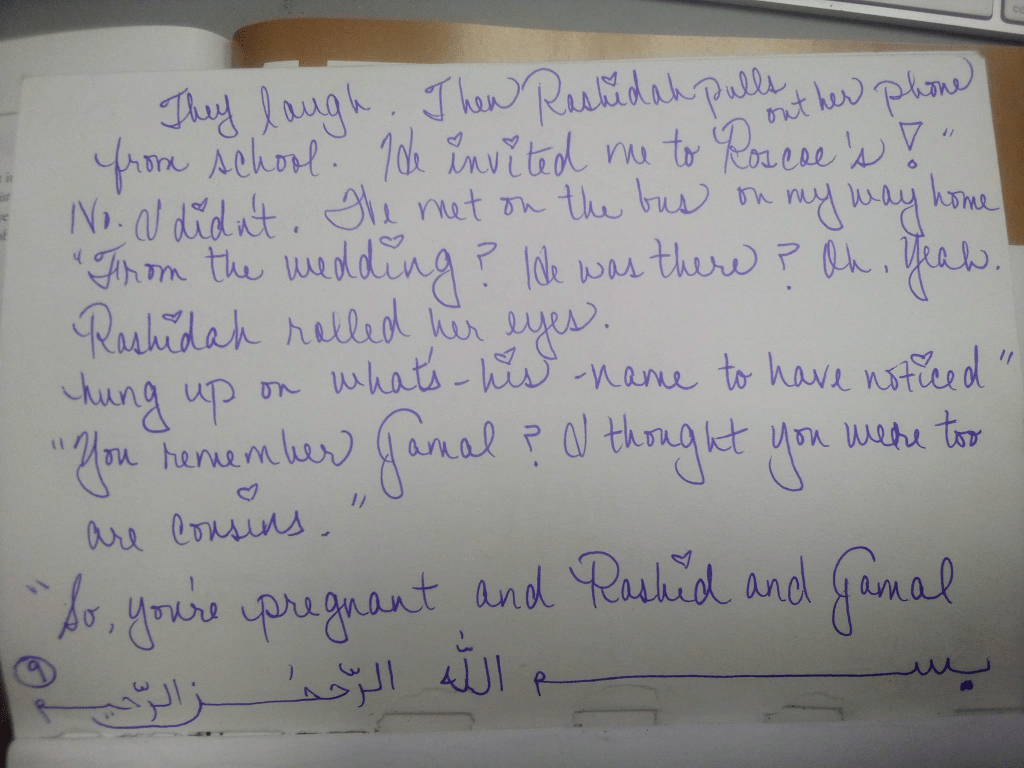 They laugh. Then Rashidah pulls out her phone
from school. He invited me to Roscoe's!"
No. I didn't. We met on the bus on my way home
"From the wedding? He was there? Oh. Yeah.
Rashidah rolled her eyes.
hung up on what's-his-name to have noticed"
"You remember Jamal? I thought you were too
are cousins."
"So, you're pregnant and Rashid and Jamal
9 بسم اللّٰه الرّحمٰن الرّحيم